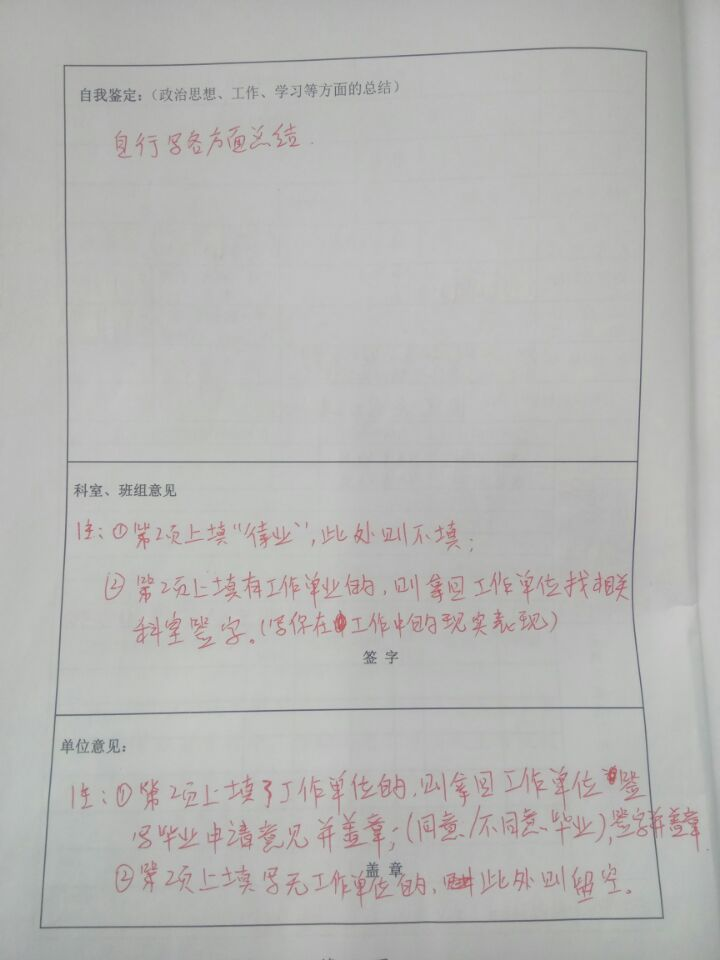 自我鉴定:（政治思想、工作、学习等方面的总结）
自行写各方面总结.
科室、班组意见
注:①第2页上填“待业”,此处则不填;
②第2页上填有工作单业的,则拿回工作单位找相关
科室签字。(写你在工作中的现实表现)
签 字
单位意见:
注:①第2页上填了工作单位的,则拿回工作单位签
写毕业申请意见并盖章;(同意/不同意毕业),签字并盖章
盖 章
②第2页上填写无工作单位的,此处则留空。